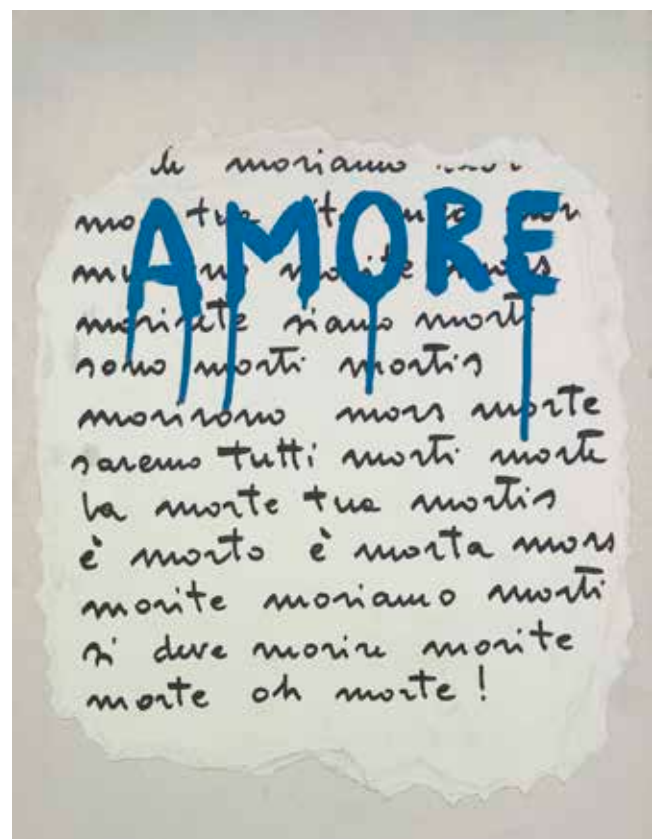 moriamo
AMORE
tua
morite
morirete siamo morti
sono morti mortis
morirono mors morte
saremo tutti morti morte
la morte tua mortis
è morto è morta mors
morite moriamo morti
si deve morire morite
morte oh morte !